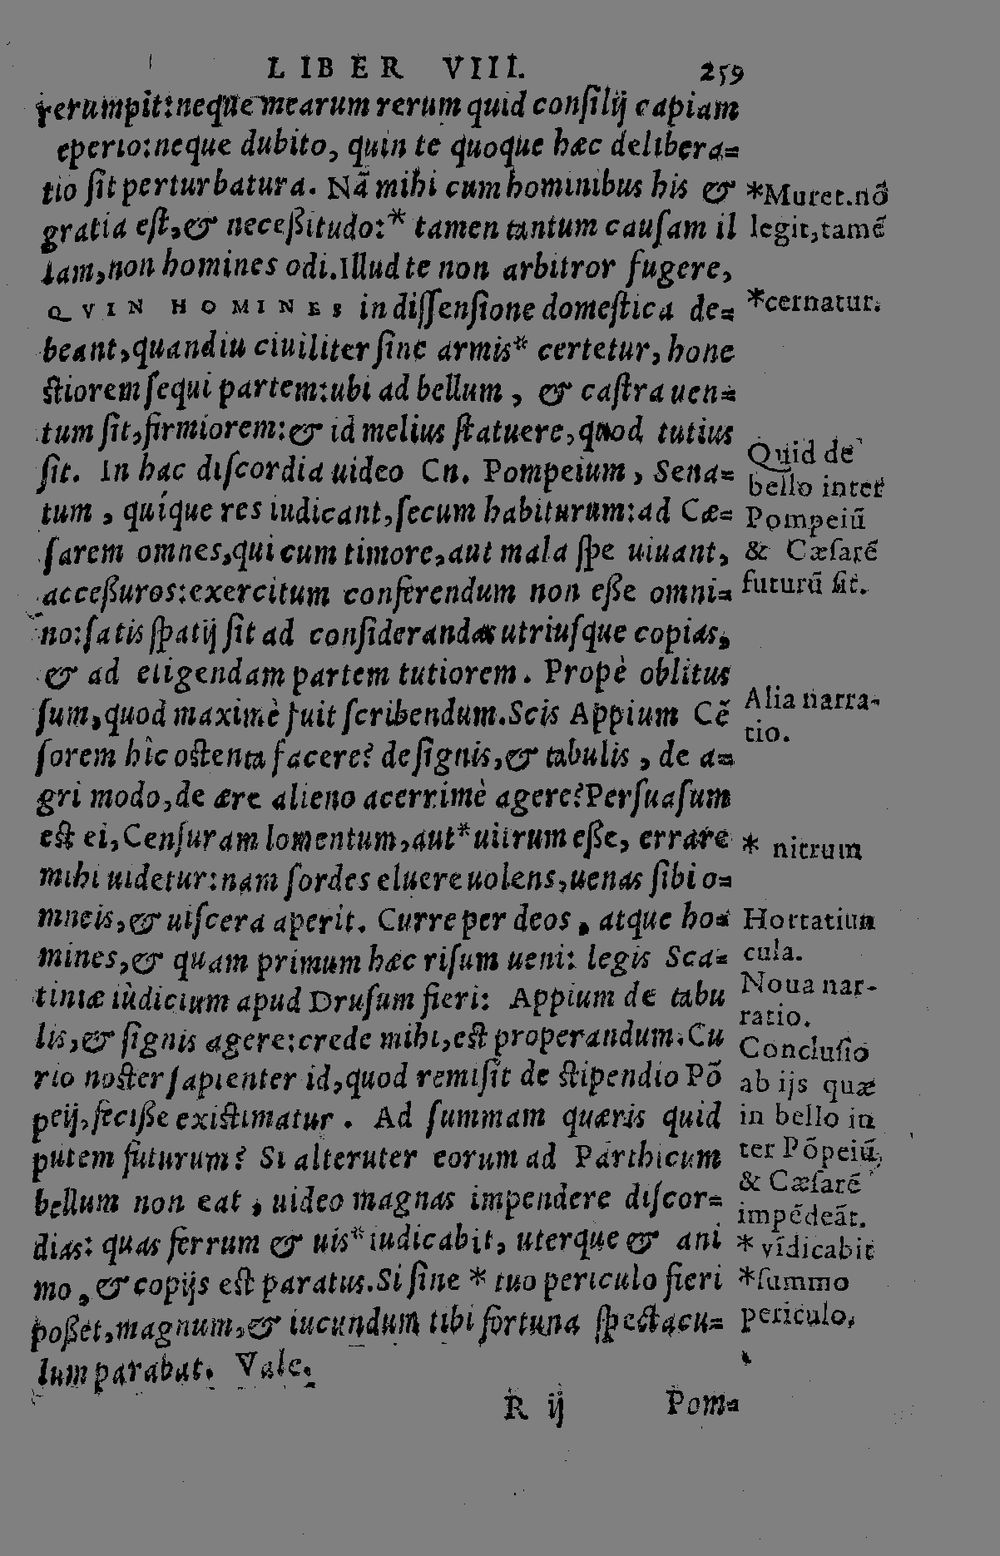 LIBER VIII. 259
rerumpit: neque mearum rerum quid consilij capiam
eperio: neque dubito, quin te quoque hæc delibera=
tio sit perturbatura. Nã mihi cum hominibus his &
gratia est, & necessitudo:* tamen tantum causam il
lam, non homines odi. Illud te non arbitror fugere,
QVIN HOMINES in dissensione domestica de=
beant, quandiu ciuiliter sine armis* certetur, hone
stiorem sequi partem: ubi ad bellum, & castra uen=
tum sit, firmiorem: & id melius statuere, quod tutius
sit. In hac discordia uideo Cn. Pompeium, Sena=
tum, quíque res iudicant, secum habiturum: ad Cæ=
sarem omnes, qui cum timore, aut mala spe uiuant,
accessuros: exercitum conferendum non esse omni=
no: satis spatij sit ad considerandas utriusque copias,
& ad eligendam partem tutiorem. Propè oblitus
sum, quod maximè fuit scribendum. Scis Appium Cẽ
sorem hîc ostenta facere? de signis, & tabulis, de a=
gri modo, de ære alieno acerrimè agere? Persuasum
est ei, Censuram lomentum, aut* uitrum esse, errare
mihi uidetur: nam sordes eluere uolens, uenas sibi o=
mneis, & uiscera aperit. Curre per deos, atque ho=
mines, & quam primum hæc risum ueni: legis Sca=
tiniæ iùdicium apud Drusum fieri: Appium de tabu
lis, & signis agere: crede mihi, est properandum. Cu
rio noster sapienter id, quod remisit de stipendio Põ
peij, fecisse existimatur. Ad summam quæris quid
putem futurum? Si alteruter eorum ad Parthicum
bellum non eat, uideo magnas impendere discor=
dias: quas ferrum & uis* iudicabit, uterque & ani
mo, & copijs est paratus. Si sine * tuo periculo fieri
posset, magnum, & iucundum tibi fortuna spectacu=
lum parabat. Vale.
R ij Pom=
*Muret. nõ
legit, tamẽ
*cernatur.
Quid de
bello inter
Pompeiũ
& Cæsarẽ
futurũ sit.
Alia narra-
tio.
* nitrum
Hortatiun
cula.
Noua nar-
ratio.
Conclusio
ab ijs quæ
in bello in
ter Põpeiũ,
& Cæsarẽ
impẽdeãt.
* vĩdicabit
*summo
periculo,